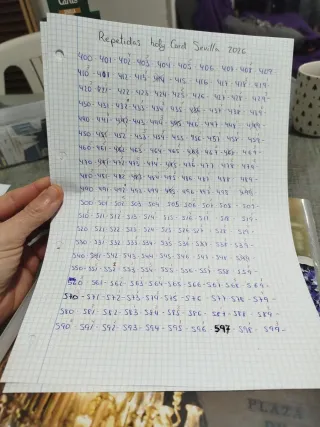 Repetidas holy Card Sevilla 2026
400 · 401 · 402 · 403 · 404 · 405 · 406 · 407 · 408 · 409 ·
410 · 411 · 412 · 413 · 414 · 415 · 416 · 417 · 418 · 419 ·
420 · 421 · 422 · 423 · 424 · 425 · 426 · 427 · 428 · 429 ·
430 · 431 · 432 · 433 · 434 · 435 · 436 · 437 · 438 · 439 ·
440 · 441 · 442 · 443 · 444 · 445 · 446 · 447 · 448 · 449 ·
450 · 451 · 452 · 453 · 454 · 455 · 456 · 457 · 458 · 459 ·
460 · 461 · 462 · 463 · 464 · 465 · 466 · 467 · 468 · 469 ·
470 · 471 · 472 · 473 · 474 · 475 · 476 · 477 · 478 · 479 ·
480 · 481 · 482 · 483 · 484 · 485 · 486 · 487 · 488 · 489 ·
490 · 491 · 492 · 493 · 494 · 495 · 496 · 497 · 498 · 499 ·
500 · 501 · 502 · 503 · 504 · 505 · 506 · 507 · 508 · 509 ·
510 · 511 · 512 · 513 · 514 · 515 · 516 · 517 · 518 · 519 ·
520 · 521 · 522 · 523 · 524 · 525 · 526 · 527 · 528 · 529 ·
530 · 531 · 532 · 533 · 534 · 535 · 536 · 537 · 538 · 539 ·
540 · 541 · 542 · 543 · 544 · 545 · 546 · 547 · 548 · 549 ·
550 · 551 · 552 · 553 · 554 · 555 · 556 · 557 · 558 · 559 ·
560 · 561 · 562 · 563 · 564 · 565 · 566 · 567 · 568 · 569 ·
570 · 571 · 572 · 573 · 574 · 575 · 576 · 577 · 578 · 579 ·
580 · 581 · 582 · 583 · 584 · 585 · 586 · 587 · 588 · 589 ·
590 · 591 · 592 · 593 · 594 · 595 · 596 · 597 · 598 · 599 ·
PLAZA
DE